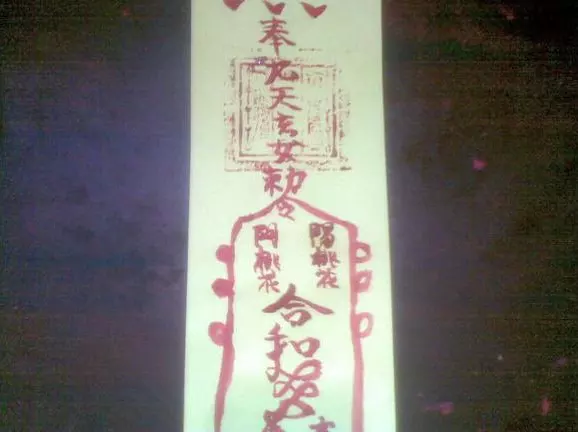 奉九天玄女勅令
桃花
桃花
合和